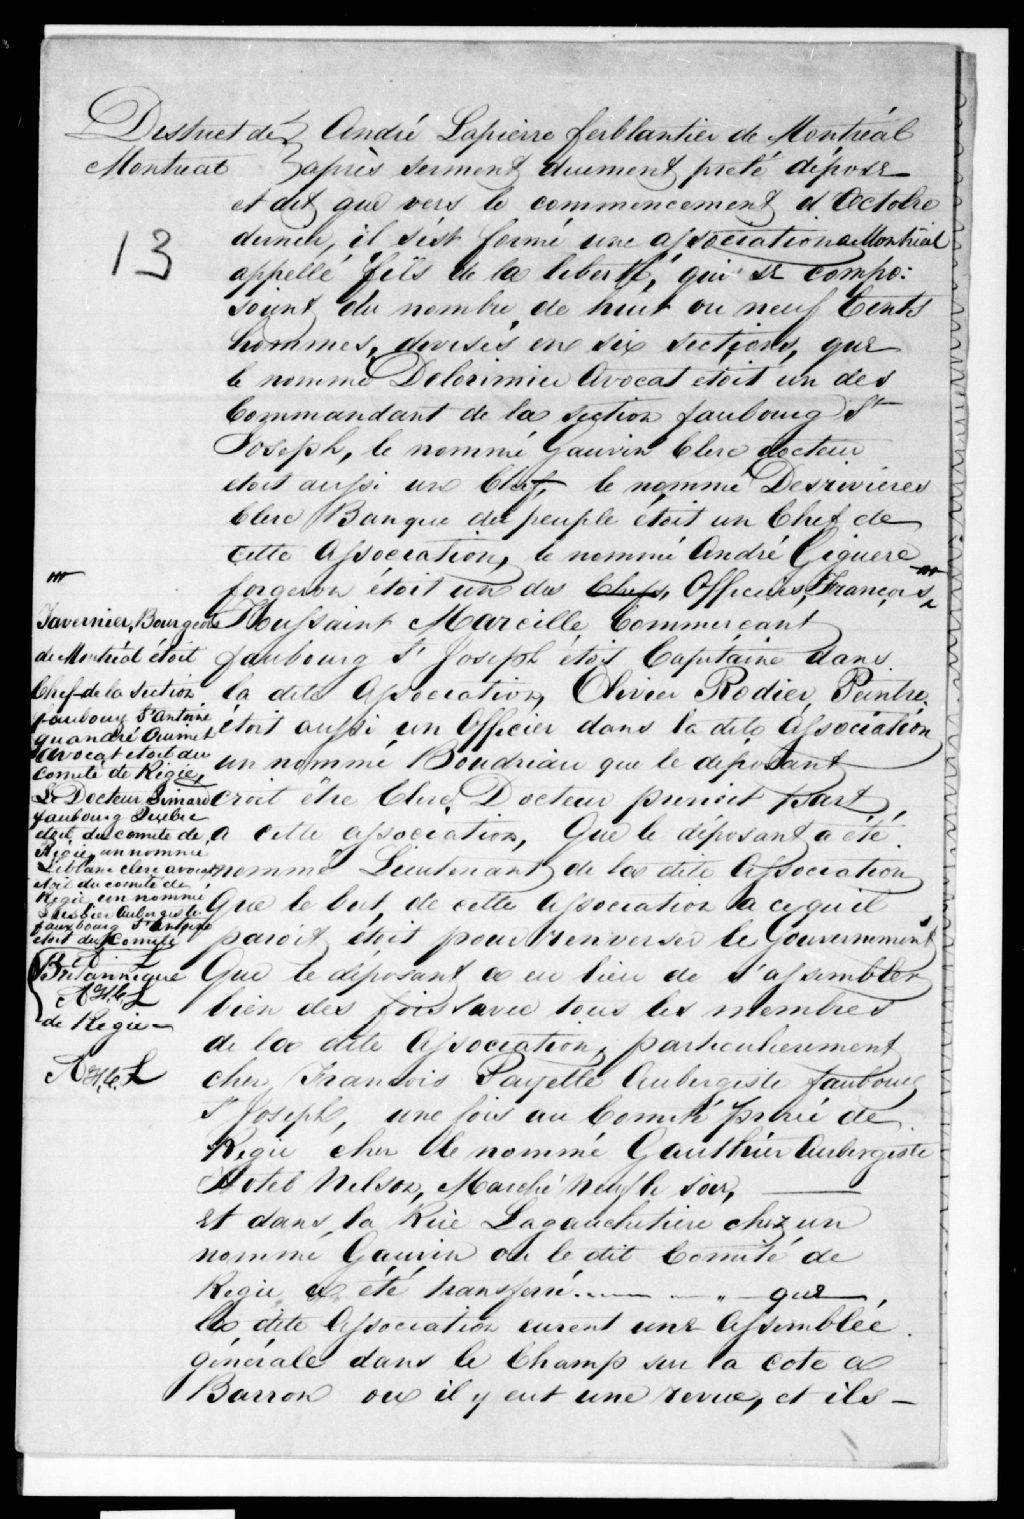 District de } André Lapierre ferblantier de Montréal
Montreal } après serment duement preté dépose
et dit que vers le commencement d'Octobre
13
dernier, il s'est formé une association a Montréal
appellé "fils de la liberté", qui se compo:
soient du nombre de huit ou neuf Cents
hommes, divisés en six sections, que
le nommé Delorimier Avocat étoit un des
Commandant de la section faubourg St
Joseph, le nommé Gauvin Clerc docteur
etoit aussi un Chef, le nommé Desrivières
Clerc Banque du peuple étoit un Chef de
cette Association, le nommé André Giguere
forgeron étoit un des Chefs, Officiers, François
Toussaint Marcille Commercant
faubourg St Joseph étoit Capitaine dans
la dite Association, Olivier Rodier, Peintre,
étoit aussi un Officier dans la dite Association
un nommé Boudriau que le déposant
croit être Clerc Docteur prenoit part
a cette association, Que le déposant a été
nommé Lieutenant de la dite Association
Que le but de cette Association a ce qu'il
paroit étoit pour renverser le Gouvernement
Que le déposant a eu lieu de s'assembler
bien des fois avec tous les membres
de la dite Association, particulierement
chez François Payette Aubergiste faubourg
St Joseph, une fois au Comité privé de
Regie chez le nommé Gauthier Aubergiste
Hotel Nelson, Marché Neuf le soir,
et dans la Rüe Lagauchetiere chez un
nommé Gauvin ou le dit Comité de
Regie a été transferré. que
la dite Association eurent une Assemblée
générale dans le Champ sur la cote a
Barron ou il y eut une revue, et ils
Tavernier, Bourgeois
de Montréal étoit
Chef de la section
faubourg St Antoine
qu'andré Ouimet
avocat etoit du
comité de Régie,
Le Docteur Simard
faubourg Quebec
etoit du comité de
Régie, un nommé
Leblanc clerc avocat
etoit du comité de
Regie, un nommé
Aubergiste
fauxbourg St Antoine
etoit du Comité
Britannique
de Regie